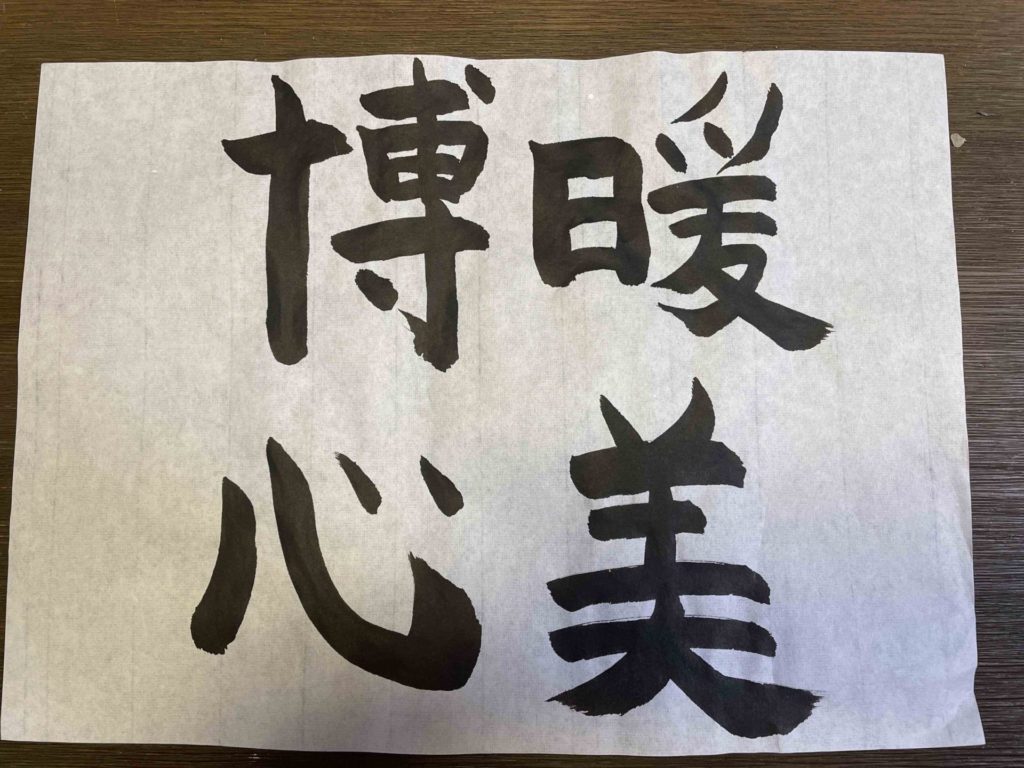 暖美
博心